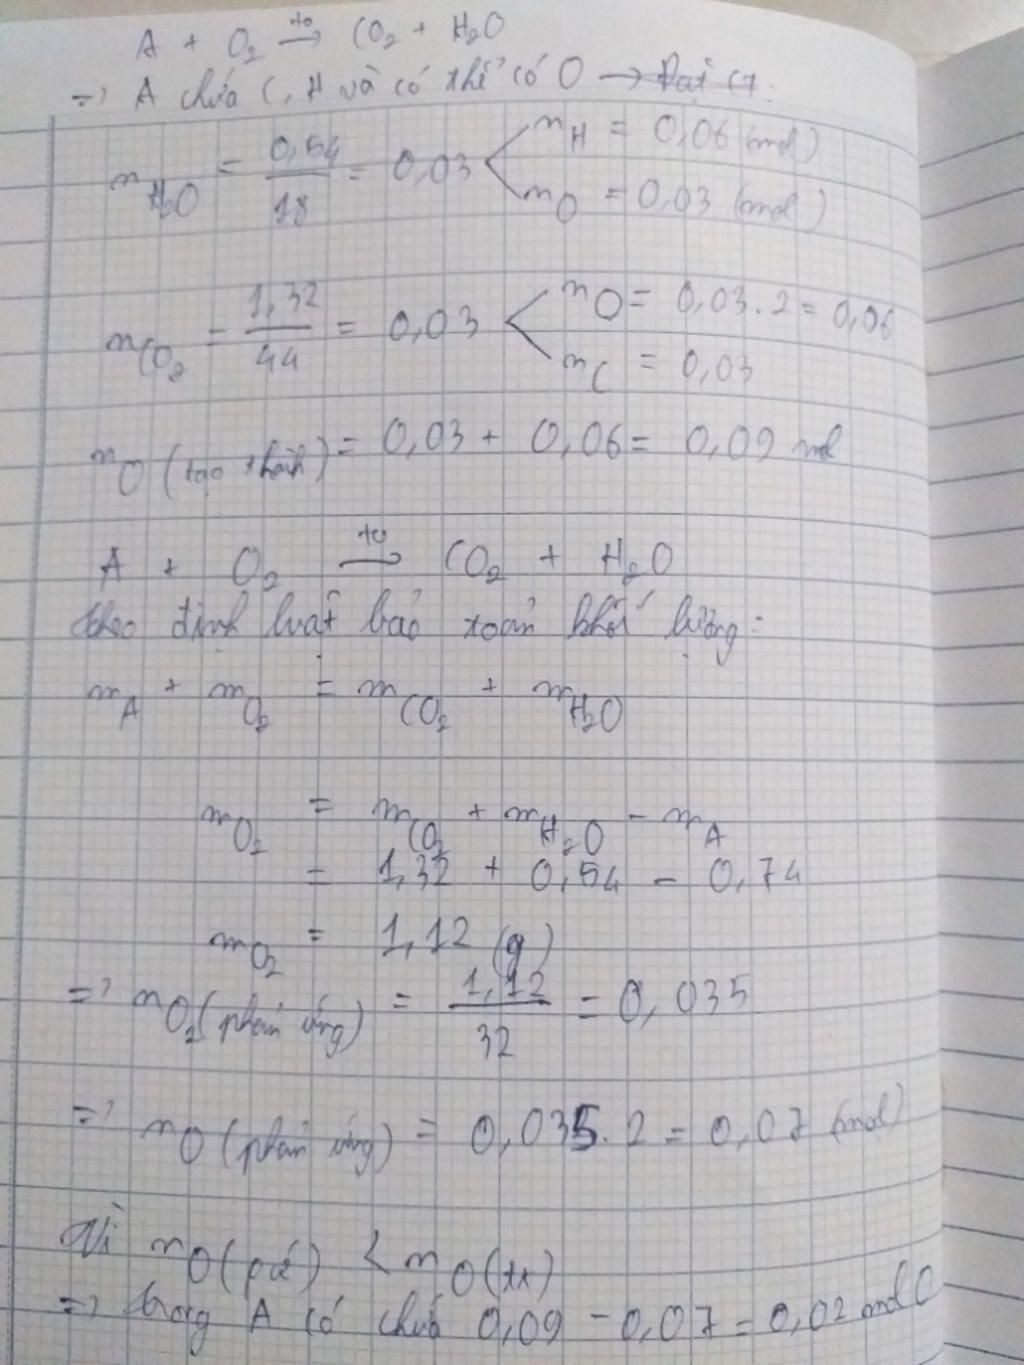 A + O₂ →(t⁰) CO₂ + H₂O
=> A chứa C, H và có thể có O →
n H₂O = 0,54/18 = 0,03 < n H = 0,06 (mol)
n O = 0,03 (mol)
n CO₂ = 1,32/44 = 0,03 < n O = 0,03.2 = 0,06
n C = 0,03
n O (tạo thành) = 0,03 + 0,06 = 0,09 mol
A + O₂ →(t⁰) CO₂ + H₂O
theo định luật bảo toàn khối lượng:
m A + m O₂ = m CO₂ + m H₂O
m O₂ = m CO₂ + m H₂O - m A
= 1,32 + 0,54 - 0,74
m O₂ = 1,12 (g)
=> n O₂ (phản ứng) = 1,12/32 = 0,035
=> n O (phản ứng) = 0,035.2 = 0,07 (mol)
Vì n O (pứ) < n O (tt)
=> trong A có chứa 0,09 - 0,07 = 0,02 mol O